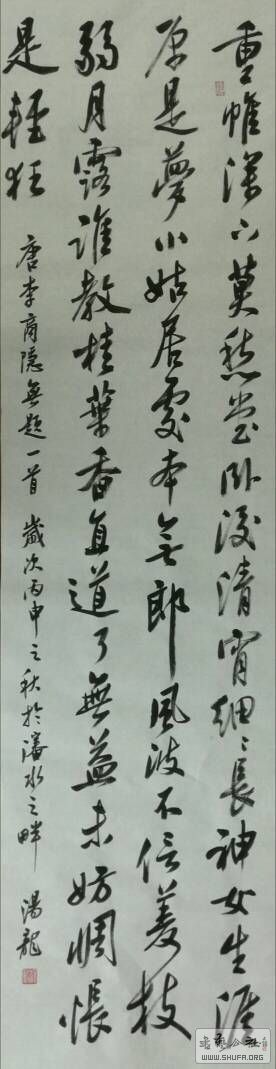 重帷深下莫愁堂卧後清宵細々長神女生涯
原是夢小姑居處本無郎風波不信菱枝
弱月露誰教桂葉香直道了無益未妨惆悵
是輕狂
唐李商隱無題一首 歲次丙申之秋於瀋水之畔 湯龍
WWW.SHUFA.ORG